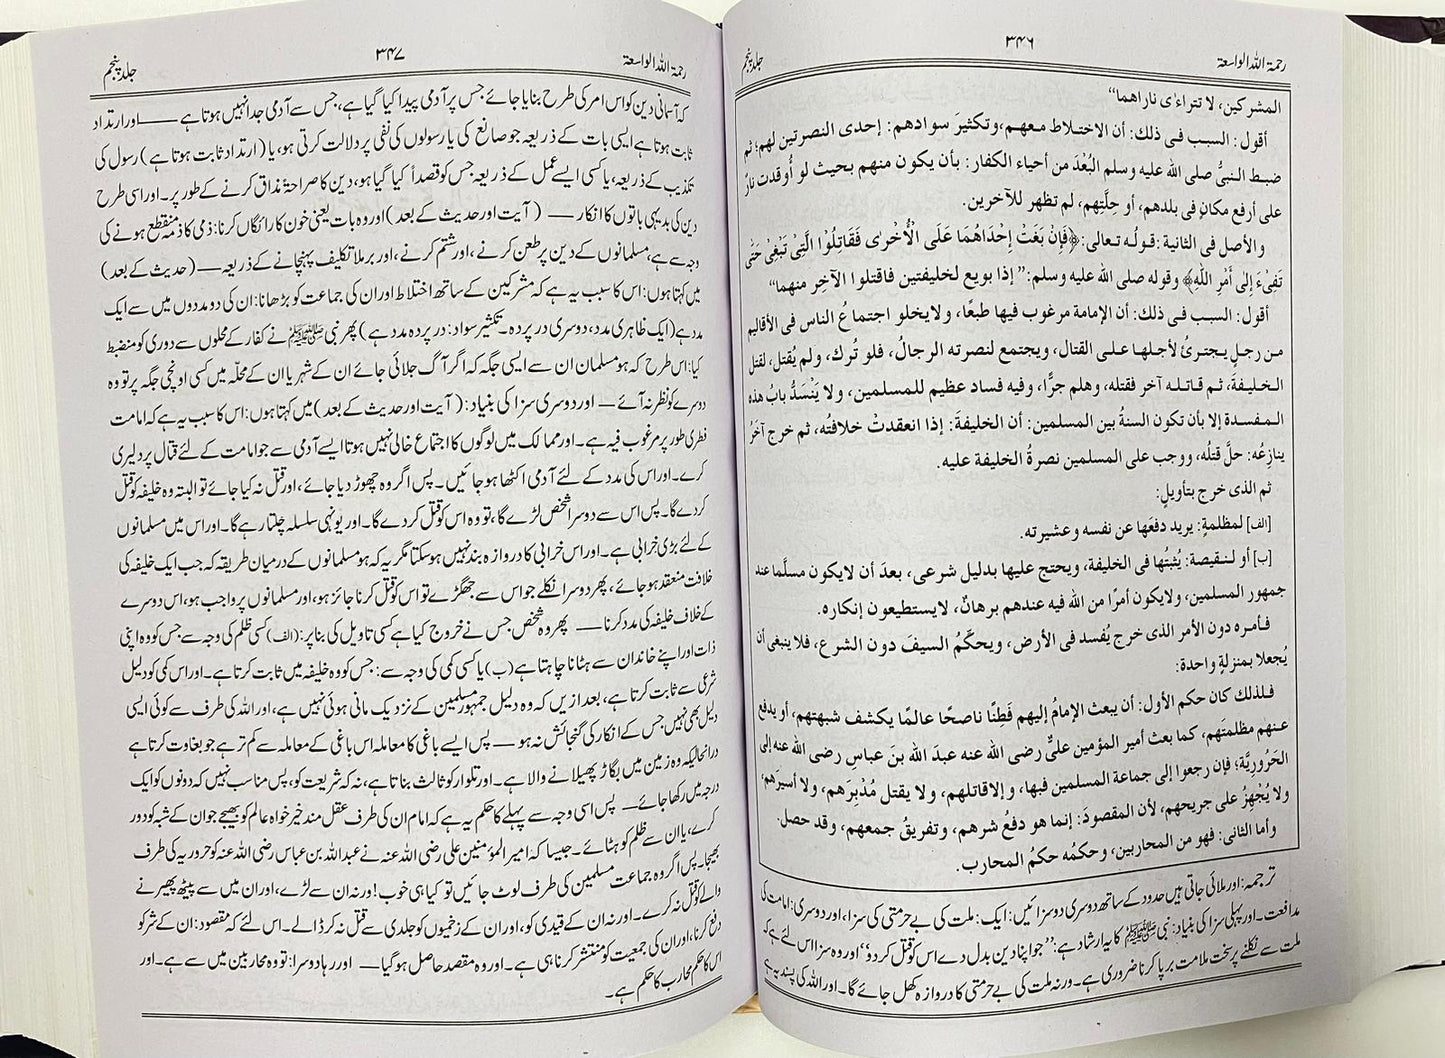 رحمۃ اللہ الواسعۃ
۳۴۶
جلد پنجم
المشركين، لا تتراءى ناراهما“
أقول: السبب فى ذلك: أن الاختلاط معهم، وتكثيرَ سوادهم: إحدى النصرتين لهم؛ ثم
ضبط النبىُّ صلى الله عليه وسلم البُعْدَ من أحياء الكفار: بأن يكون منهم بحيث لو أُوقدت نارٌ
على أرفع مكانٍ فى بلدهم، أو حِلَّتِهم، لم تظهر للآخرين.
والأصل فى الثانية: قولُه تعالى: ﴿فَإِنْ بَغَتْ إِحْدَاهُمَا عَلَى الْأُخْرٰى فَقَاتِلُوْا الَّتِىْ تَبْغِىْ حَتّٰى
تَفِىْءَ إِلٰى أَمْرِ اللّٰهِ﴾ وقوله صلى الله عليه وسلم: ”إذا بويع لخليفتين فاقتلوا الآخِر منهما“
أقول: السبب فى ذلك: أن الإمامة مرغوب فيها طبعًا، ولايخلو اجتماعُ الناس فى الأقاليم
من رجلٍ يجترئُ لأجلها على القتال، ويجتمع لنصرته الرجالُ، فلو تُرك، ولم يُقتل، لقتل
الخليفةَ، ثم قاتله آخر فقتله، وهلم جرًّا، وفيه فساد عظيم للمسلمين، ولا يَنْسَدُّ بابُ هذه
المفسدة إلا بأن تكون السنةُ بين المسلمين: أن الخليفةَ: إذا انعقدتْ خلافتُه، ثم خرج آخَرُ
ينازِعُه: حلَّ قتلُه، ووجب على المسلمين نصرةُ الخليفة عليه.
ثم الذى خرج بتأويلٍ:
[الف] لمظلمةٍ: يريد دفعَها عن نفسه وعشيرته.
[ب] أو لنقيصة: يُثبتُها فى الخليفة، ويحتج عليها بدليل شرعى، بعدَ أن لايكون مسلَّما عند
جمهور المسلمين، ولايكون أمرًا من الله فيه عندهم برهانٌ، لايستطيعون إنكاره.
فأمره دون الأمر الذى خرج يُفسد فى الأرض، ويحكِّمُ السيفَ دون الشرع، فلا ينبغى أن
يُجعلا بمنزلةٍ واحدة:
فلذلك كان حكم الأول: أن يبعث الإمامُ إليهم فَطِنًا ناصحًا عالمًا يكشف شبهتهم، أو يدفع
عنهم مظلمتَهم، كما بعث أمير المؤمنين علىٌّ رضى الله عنه عبدَ الله بنَ عباس رضى الله عنه إلى
الحَرُورِيَّة؛ فإن رجعوا إلى جماعة المسلمين فبها، وإلا قاتلهم، ولا يقتل مُدْبِرَهم، ولا أسيرَهم،
ولا يُجْهِزُ على جريحهم، لأن المقصودَ: إنما هو دفعُ شرهم، وتفريقُ جمعهم، وقد حصل.
وأما الثانى: فهو من المحاربين، وحكمُه حكمُ المحارب.
ترجمہ: اور ملائی جاتی ہیں حدود کے ساتھ دوسری دو سزائیں: ایک: ملت کی بے حرمتی کی سزا، اور دوسری: امامت کی
مدافعت۔ اور پہلی سزا کی بنیاد: نبی ﷺ کا یہ ارشاد ہے: ”جو اپنا دین بدل دے اس کو قتل کردو“ اور وہ سزا اس لئے ہے کہ
ملت سے نکلنے پر سخت ملامت برپا کرنا ضروری ہے۔ ورنہ ملت کی بے حرمتی کا دروازہ کھل جائے گا۔ اور اللہ کی پسند یہ ہے
رحمۃ اللہ الواسعۃ
۳۴۷
جلد پنجم
کہ آسمانی دین کو اس امر کی طرح بنایا جائے جس پر آدمی پیدا کیا گیا ہے، جس سے آدمی جدا نہیں ہوتا ہے —— اور ارتداد
ثابت ہوتا ہے ایسی بات کے ذریعہ جو صانع کی یا رسولوں کی نفی پر دلالت کرتی ہو، یا (ارتداد ثابت ہوتا ہے) رسول کی
تکذیب کے ذریعہ، یا کسی ایسے عمل کے ذریعہ جس کو قصداً کیا گیا ہو، دین کا صراحۃً مذاق کرنے کے طور پر۔ اور اسی طرح
دین کی بدیہی باتوں کا انکار —— (آیت اور حدیث کے بعد) اور وہ بات یعنی خون کا رائگاں کرنا: ذمی کا ذمہ منقطع ہونے کی
وجہ سے ہے، مسلمانوں کے دین پر طعن کرنے، اور شتم کرنے، اور برملا تکلیف پہنچانے کے ذریعہ —— (حدیث کے بعد)
میں کہتا ہوں: اس کا سبب یہ ہے کہ مشرکین کے ساتھ اختلاط اور ان کی جماعت کو بڑھانا: ان کی دو مددوں میں سے ایک
مدد ہے (ایک ظاہری مدد، دوسری در پردہ۔ تکثیر سواد: در پردہ مدد ہے) پھر نبی ﷺ نے کفار کے محلوں سے دوری کو منضبط
کیا: اس طرح کہ ہو مسلمان ان سے ایسی جگہ کہ اگر آگ جلائی جائے ان کے شہر یا ان کے محلّہ میں کسی اونچی جگہ پر تو وہ
دوسرے کو نظر نہ آئے —— اور دوسری سزا کی بنیاد: (آیت اور حدیث کے بعد) میں کہتا ہوں: اس کا سبب یہ ہے کہ امامت
فطری طور پر مرغوب فیہ ہے۔ اور ممالک میں لوگوں کا اجتماع خالی نہیں ہوتا ایسے آدمی سے جو امامت کے لئے قتال پر دلیری
کرے۔ اور اس کی مدد کے لئے آدمی اکٹھا ہو جائیں۔ پس اگر وہ چھوڑ دیا جائے، اور قتل نہ کیا جائے تو البتہ وہ خلیفہ کو قتل
کردے گا۔ پس اس سے دوسرا شخص لڑے گا، تو وہ اس کو قتل کردے گا۔ اور یونہی سلسلہ چلتا رہے گا۔ اور اس میں مسلمانوں
کے لئے بڑی خرابی ہے۔ اور اس خرابی کا دروازہ بند نہیں ہوسکتا مگر یہ کہ ہو مسلمانوں کے درمیان طریقہ کہ جب ایک خلیفہ کی
خلافت منعقد ہوجائے، پھر دوسرا نکلے جو اس سے جھگڑے تو اس کو قتل کرنا جائز ہو، اور مسلمانوں پر واجب ہو، اس دوسرے
کے خلاف خلیفہ کی مدد کرنا —— پھر وہ شخص جس نے خروج کیا ہے کسی تاویل کی بنا پر: (الف) کسی ظلم کی وجہ سے جس کو وہ اپنی
ذات اور اپنے خاندان سے ہٹانا چاہتا ہے (ب) یا کسی کمی کی وجہ سے: جس کو وہ خلیفہ میں ثابت کرتا ہے۔ اور اس کمی کو دلیل
شرعی سے ثابت کرتا ہے، بعد ازیں کہ وہ دلیل جمہور مسلمین کے نزدیک مانی ہوئی نہیں ہے، اور اللہ کی طرف سے کوئی ایسی
دلیل بھی نہیں جس کے انکار کی گنجائش نہ ہو —— پس ایسے باغی کا معاملہ اس باغی کے معاملہ سے کم تر ہے جو بغاوت کرتا ہے
درانحالیکہ وہ زمین میں بگاڑ پھیلانے والا ہے۔ اور تلوار کو ثالث بناتا ہے، نہ کہ شریعت کو، پس مناسب نہیں کہ دونوں کو ایک
درجہ میں رکھا جائے —— پس اسی وجہ سے پہلے کا حکم یہ ہے کہ امام ان کی طرف عقل مند خیر خواہ عالم کو بھیجے جو ان کے شبہ کو دور
کرے، یا ان سے ظلم کو ہٹائے۔ جیسا کہ امیر المؤمنین علی رضی اللہ عنہ نے عبداللہ بن عباس رضی اللہ عنہ کو حروریہ کی طرف
بھیجا۔ پس اگر وہ جماعت مسلمین کی طرف لوٹ جائیں تو کیا ہی خوب! ورنہ ان سے لڑے، اور ان میں سے پیٹھ پھیرنے
والے کو قتل نہ کرے۔ اور نہ ان کے قیدی کو، اور ان کے زخمیوں کو جلدی سے قتل نہ کر ڈالے۔ اس لئے کہ مقصود: ان کے شر کو
دفع کرنا، اور ان کی جمعیت کو منتشر کرنا ہی ہے۔ اور وہ مقصد حاصل ہوگیا —— اور رہا دوسرا: تو وہ محاربین میں سے ہے۔ اور
اس کا حکم محارب کا حکم ہے۔